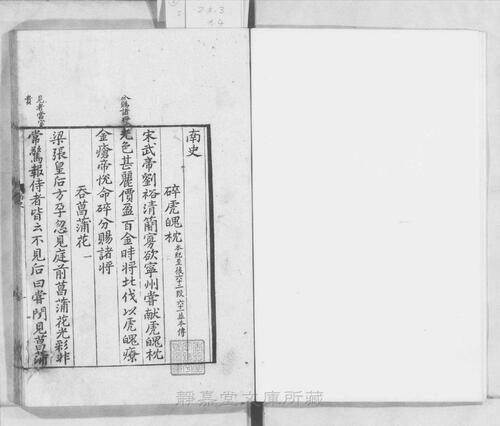 南史
碎虎魄枕 本紀至後六十一段六十一並本傳
宋武帝劉裕清簡寡欲寧州嘗献虎魄枕
光色甚麗價盈百金時將北伐以虎魄療
金瘡帝悅命碎分賜諸將
吞菖蒲花一
梁張皇后方孕忽見庭前菖蒲花光彩非
常驚報侍者皆云不見后曰嘗聞見菖蒲
見者當富貴
靜嘉堂文庫所藏